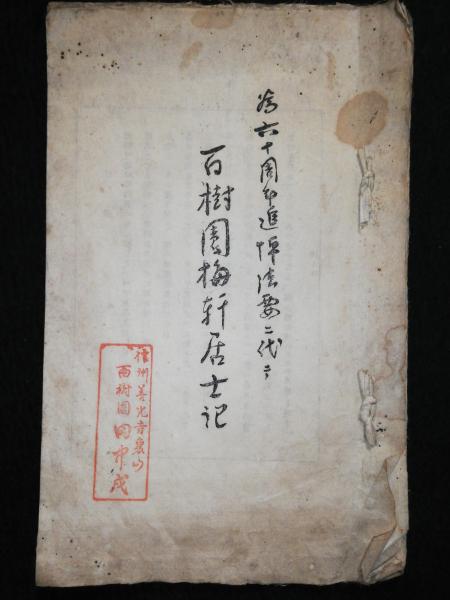 為六十周年追悼法要ニ代ニ
百樹園梅軒居士記
信州善光寺裏山
百樹園 田中成